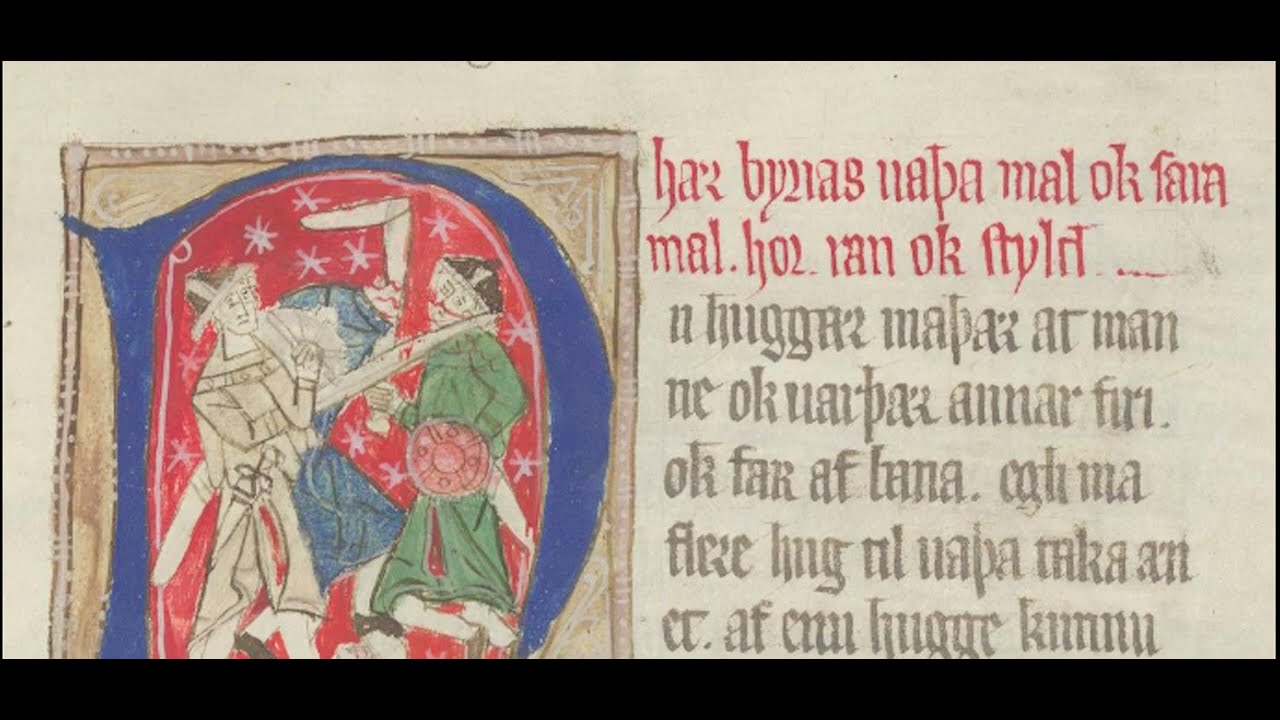 hær byrias uaþa mal ok ſara
mal. hor. ran ok ſtyld.
u huggær maþær at man
ne ok uarþær annar firi.
ok far af bana. egh ma
flere hug til uaþa taka æn
et. af enu hugge kunnu